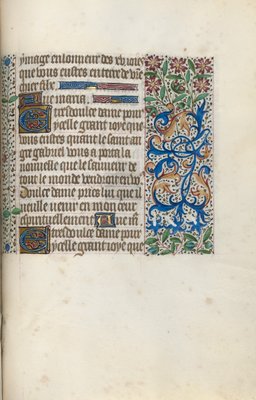 ymage en lonneur des xv ioies
que vous eustes en terre de vostre
chier filz
Ave maria
Tresdoulce dame pour
ycelle grant ioye que
vous eustes quant le saint an
ge gabriel vous aporta la
nouuelle que le sauueur de
tout le monde vendroit en vo
Doulce dame pries lui que il
vueille uenir en mon cueur
espirituellement
Tresdoulce dame pour
ycelle grant ioye que